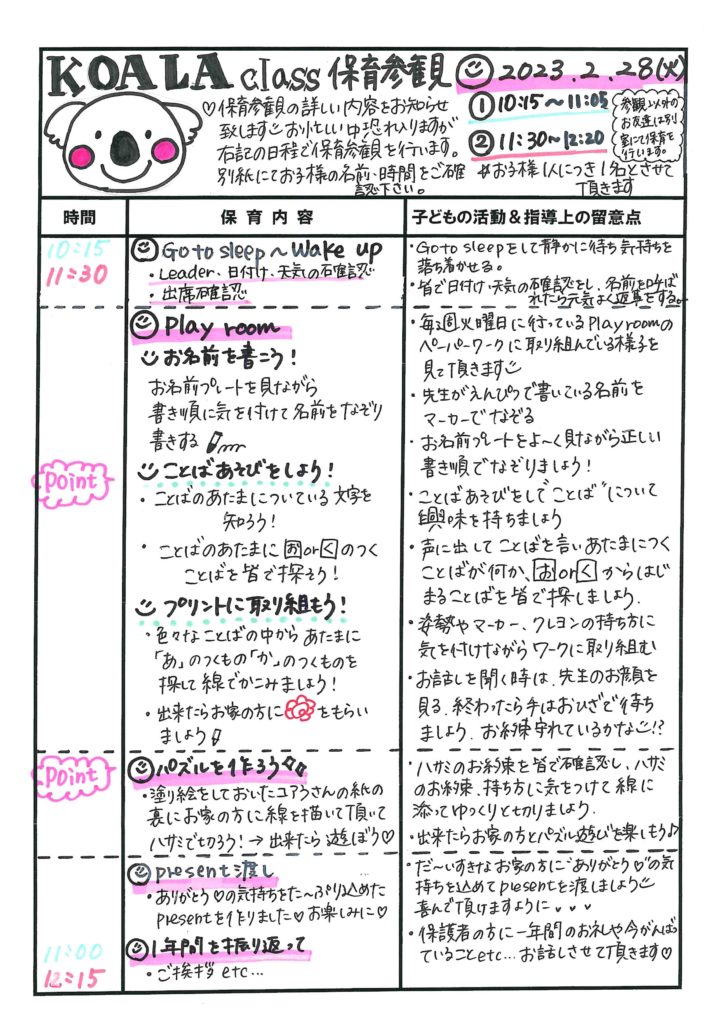 KOALA class 保育参観 2023.2.28(火)
♡保育参観の詳しい内容をお知らせ
致しますお忙しい中恐れ入りますが
右記の日程で保育参観を行います。
別紙にてお子様の名前、時間をご確
認下さい。
① 10:15〜11:05
② 11:30〜12:20
参観以外の
お友達は別
室にて保育を
行います。
#お子様1人につき1名とさせて
頂きます
時間
保育内容
子どもの活動&指導上の留意点
10:15
11:30
Go to sleep〜Wake up
・Leader、日付け、天気の確認
・出席確認
・Go to sleepをして静かに待ち気持ちを
落ち着かせる。
・皆で日付け、天気の確認をし、名前を呼ば
れたら元気よく返事をする。
Point
Play room
お名前を書こう!
お名前プレートを見ながら
書き順に気を付けて名前をなぞり
書きする
ことばあそびをしよう!
・ことばのあたまについている文字を
知ろう!
・ことばのあたまに おorく のつく
ことばを皆で探そう!
プリントに取り組もう!
・色々なことばの中からあたまに
「あ」のつくもの「か」のつくものを
探して線でかこみましょう!
・出来たらお家の方に をもらい
ましょう♪
・毎週火曜日に行っているPlayroomの
ペーパーワークに取り組んでいる様子を
見て頂きます
・先生がえんぴつで書いている名前を
マーカーでなぞる
・お名前プレートをよ〜く見ながら正しい
書き順でなぞりましょう!
・ことばあそびをして"ことば"について
興味を持ちましょう
・声に出してことばを言いあたまにつく
ことばが何か、おorくからはじ
まることばを皆で探しましょう.
・姿勢やマーカー、クレヨンの持ち方に
気を付けながらワークに取り組む
・お話しを聞く時は、先生のお顔を
見る.終わったら手はおひざで待ち
ましょう.お約束守れているかな!?
Point
パズルを作ろう♪
・塗り絵をしておいたコアラさんの紙の
裏にお家の方に線を描いて頂いて
ハサミで切ろう!→出来たら遊ぼう♡
・ハサミのお約束を皆で確認し、ハサミ
のお約束、持ち方に気をつけて線に
添ってゆっくりと切りましょう.
・出来たらお家の方とパズル遊びを楽しもう♪
present渡し
・ありがとう♡の気持ちをた〜ぷり込めた
presentを作りました♡お楽しみに♡
・だ〜いすきなお家の方に"ありがとう♡"の気
持ちを込めてpresentを渡しましょう
喜んで頂けますように
11:00
12:15
1年間を振り返って
・ご挨拶 etc…
・保護者の方に一年間のお礼や今がんば
っていることetc…お話しさせて頂きます♡